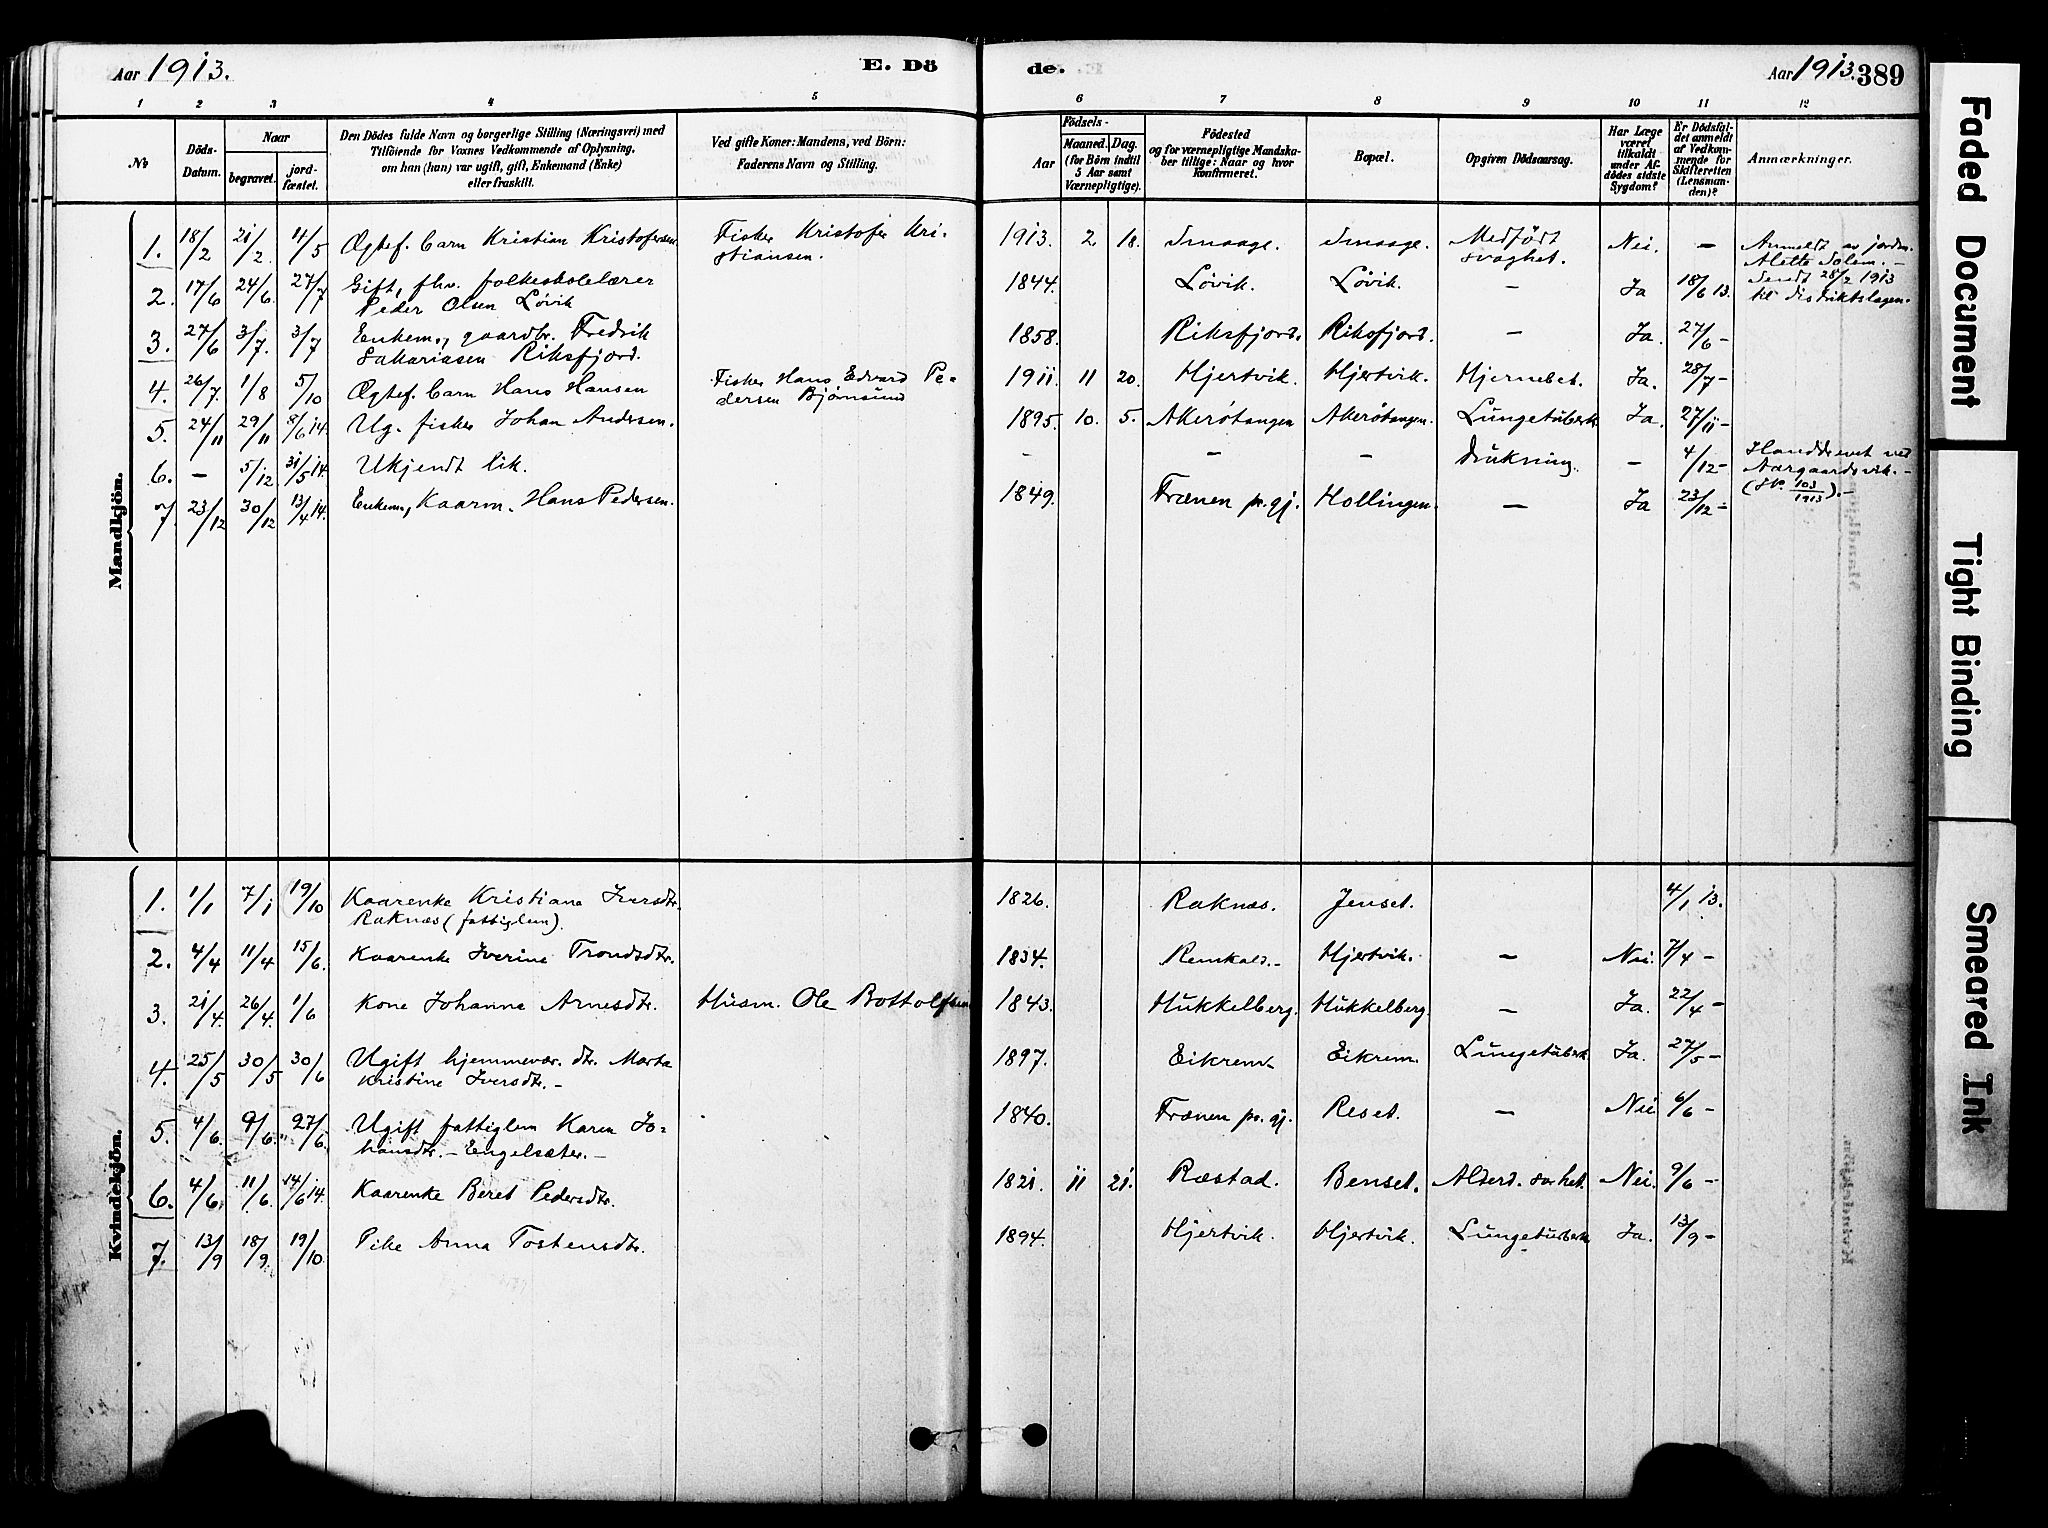 Aar 1913.
E. Dö
de.
Aar 1913. 389
1 2 3 4 5 6 7 8 9 10 11 12
No
Döds-Datum.
Naar
begravet.
jordfæstet.
Den Dödes fulde Navn og borgerlige Stilling (Næringsvei) med
Tilföiende for Voxnes Vedkommende af Oplysning,
om han (hun) var ugift, gift, Enkemand (Enke)
eller fraskilt.
Ved gifte Koner: Mandens, ved Börn:
Faderens Navn og Stilling.
Födsels-
Aar
Maaned. Dag.
(for Börn indtil
5 Aar samt
Værnepligtige).
Födested
og for værnepligtige Mandskaber tillige: Naar og hvor
Konfirmeret.
Bopæl.
Opgiven Dödsaarsag.
Har Læge
været
tilkaldt
under Afdödes sidste
Sygdom?
Er Dödsfaldet anmeldt
af Vedkommende for
Skifteretten
(Lensmanden)?
Anmærkninger.
Mandkjön.
1. 18/2 21/2 11/5 Ægtef. barn Kristian Kristofersen Fisker Kristofer Kristiansen. 1913. 2 18. Smaage. Smaage. Medfödt svaghet. Nei. - Anmeldt av jordm. Alette Solem. - Sendt 28/2 1913 til distriktslægen.
2. 17/6 24/6. 27/7 Gift, fhv. folkeskolelærer Peder Olsen Lövik 1844. Lövik. Lövik. - Ja 18/6 13.
3. 27/6 3/7. 3/7 Enkem., gaardbr. Fredrik Sakariasen Riksfjord. 1858. Riksfjord. Riksfjord. - Ja. 27/6 -
4. 26/7. 1/8 5/10 Ægtef. barn Hans Hansen Fisker Hans Edvard Pedersen Bjørnsund 1911. 11 20. Hjertvik. Hjertvik. Hjernebet. Ja. 28/7 -
5. 24/11 29/11 8/6 14. Ug. fisker Johan Andersen. 1895. 10. 5. Akerötangen Akerötangen. Lungetuberk. Ja. 27/11 -
6. - 5/12 31/5 14. Ukjendt lik. - - - Drukning. - 4/12 - Ilanddrevet ved Nørgaardsvik. - (Nr. 103/1913). -
7. 23/12 30/12 13/4 14. Enkem., Kaarm. Hans Pedersen. 1849. Frænen pr. gj. Hollingen. - Ja 23/12 -
Kvindekjön.
1. 1/1 7/1 19/10 Kaarenke Kristiane Iversdtr. Raknæs (fattiglem). 1826. Raknæs. Jenset. 4/1 13.
2. 4/4 11/4 15/6. Kaarenke Iverine Trondsdtr. 1834. Remkals. - Hjertvik. - Nei. 7/4 -
3. 21/4. 26/4. 1/6 Kone Johanna Arnesdtr. Husm. Ole Bottolfsen 1843. Hukkelberg. Hukkelberg. - Ja. 22/4 -
4. 25/5 30/5 30/6 Ugift hjemmevær. dtr. Marta Kristine Iversdtr. - 1897. Eikrem. Eikrem. Lungetuberk. Ja. 27/5 -
5. 4/6. 9/6. 27/6. Ugift fattiglem Karen Johansdtr. - Engelsæter. - 1840. Frænen pr. gj. Reset. - Nei 6/6 -
6. 4/6. 11/6. 14/6 14. Kaarenke Beret Pedersdtr. 1821. 11 21. Ræstad. Benset. Alderd. svakhet. Nei. 9/6 -
7. 13/9 18/9. 19/10. Pike Anna Tostensdtr. 1894. Hjertvik. Hjertvik. Lungetuberk. Ja. 13/9 -
Faded Document
Tight Binding
Smeared Ink